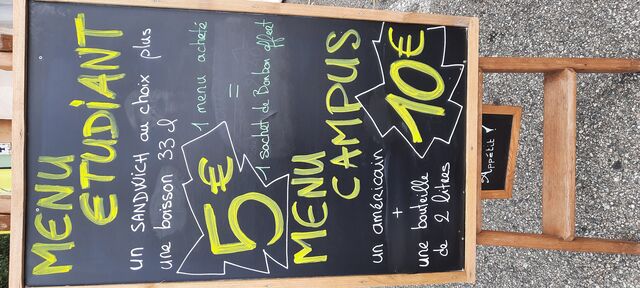 MENU
ETUDiANT
un SANDWICH au choix plus
une boisson 33 cl
5€
1 menu acheté
=
1 sachet de Bonbon offert
MENU
CAMPUS
un américain
+
une bouteille
de 2 litres
10€
Appétit !